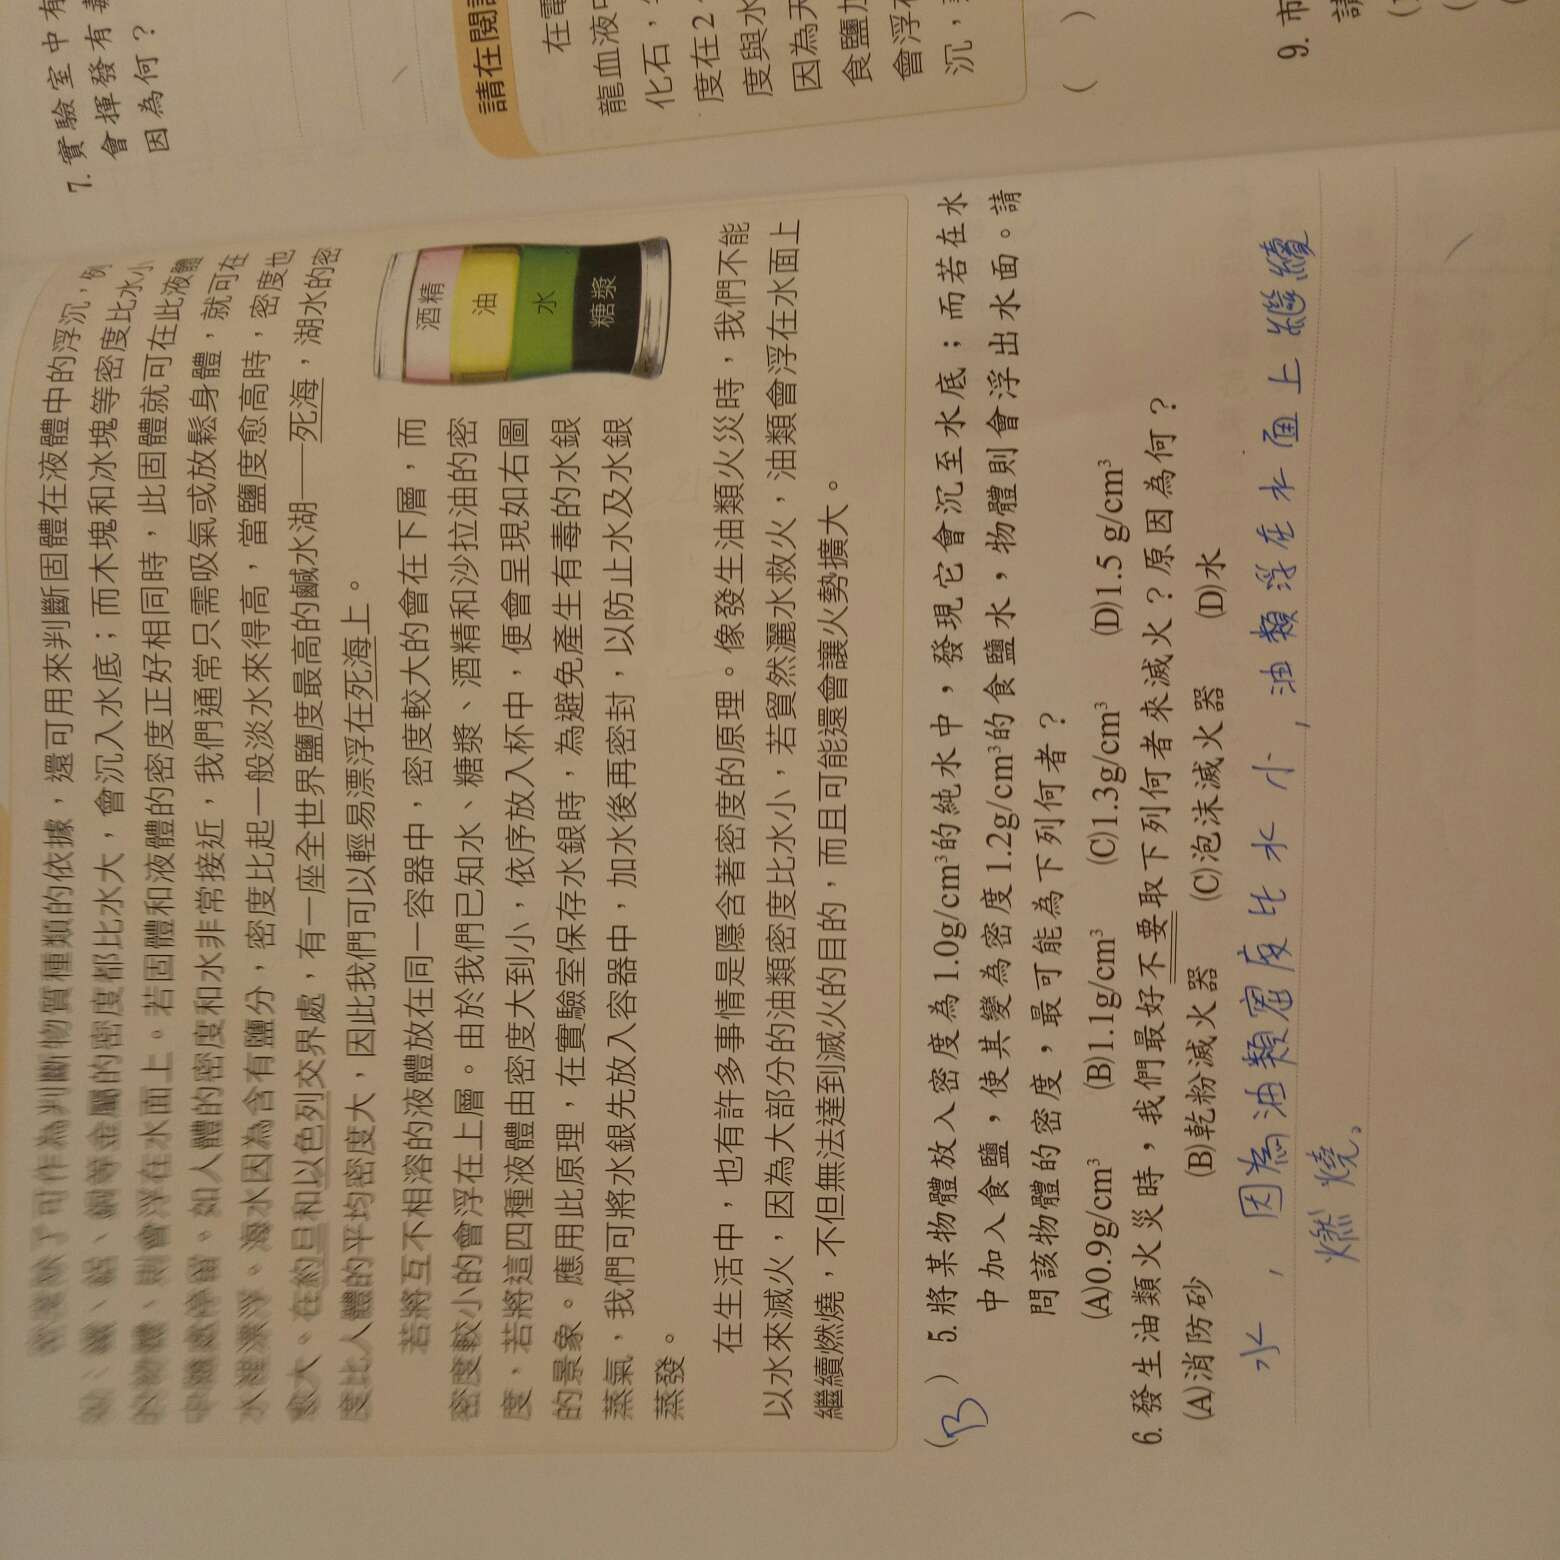 可作為判斷物質種類的依據，還可用來判斷固體在液體中的浮沉，例
、鐵、鋁、銅等金屬的密度都比水大，會沉入水底；而木塊和冰塊等密度比水小
的物體、則會浮在水面上。若固體和液體的密度正好相同時，此固體就可在此液體
中隨處停留。如人體的密度和水非常接近，我們通常只需吸氣或放鬆身體，就可在
水裡漂浮。海水因為含有鹽分，密度比起一般淡水來得高，當鹽度愈高時，密度也
愈大。在約旦和以色列交界處，有一座全世界鹽度最高的鹹水湖──死海，湖水的密
度比人體的平均密度大，因此我們可以輕易漂浮在死海上。
若將互不相溶的液體放在同一容器中，密度較大的會在下層，而
密度較小的會浮在上層。由於我們已知水、糖漿、酒精和沙拉油的密
度，若將這四種液體由密度大到小，依序放入杯中，便會呈現如右圖
的景象。應用此原理，在實驗室保存水銀時，為避免產生有毒的水銀
蒸氣，我們可將水銀先放入容器中，加水後再密封，以防止水及水銀
蒸發。
酒精
油
水
糖漿
在生活中，也有許多事情是隱含著密度的原理。像發生油類火災時，我們不能
以水來滅火，因為大部分的油類密度比水小，若貿然灑水救火，油類會浮在水面上
繼續燃燒，不但無法達到滅火的目的，而且可能還會讓火勢擴大。
(B) 5.將某物體放入密度為1.0g/cm³的純水中，發現它會沉至水底；而若在水
中加入食鹽，使其變為密度1.2g/cm³的食鹽水，物體則會浮出水面。請
問該物體的密度，最可能為下列何者？
(A)0.9g/cm³ (B)1.1g/cm³ (C)1.3g/cm³ (D)1.5 g/cm³
6.發生油類火災時，我們最好不要取下列何者來滅火？原因為何？
(A)消防砂 (B)乾粉滅火器 (C)泡沫滅火器 (D)水
水，因為油類密度比水小，油類浮在水面上繼續
燃燒。
7.實驗室中有
會揮發有毒
因為何？
請在閱讀
在電
龍血液中
化石，
度在2
度與水
因為天
食鹽加
會浮在
沉，
( )
9.市
請